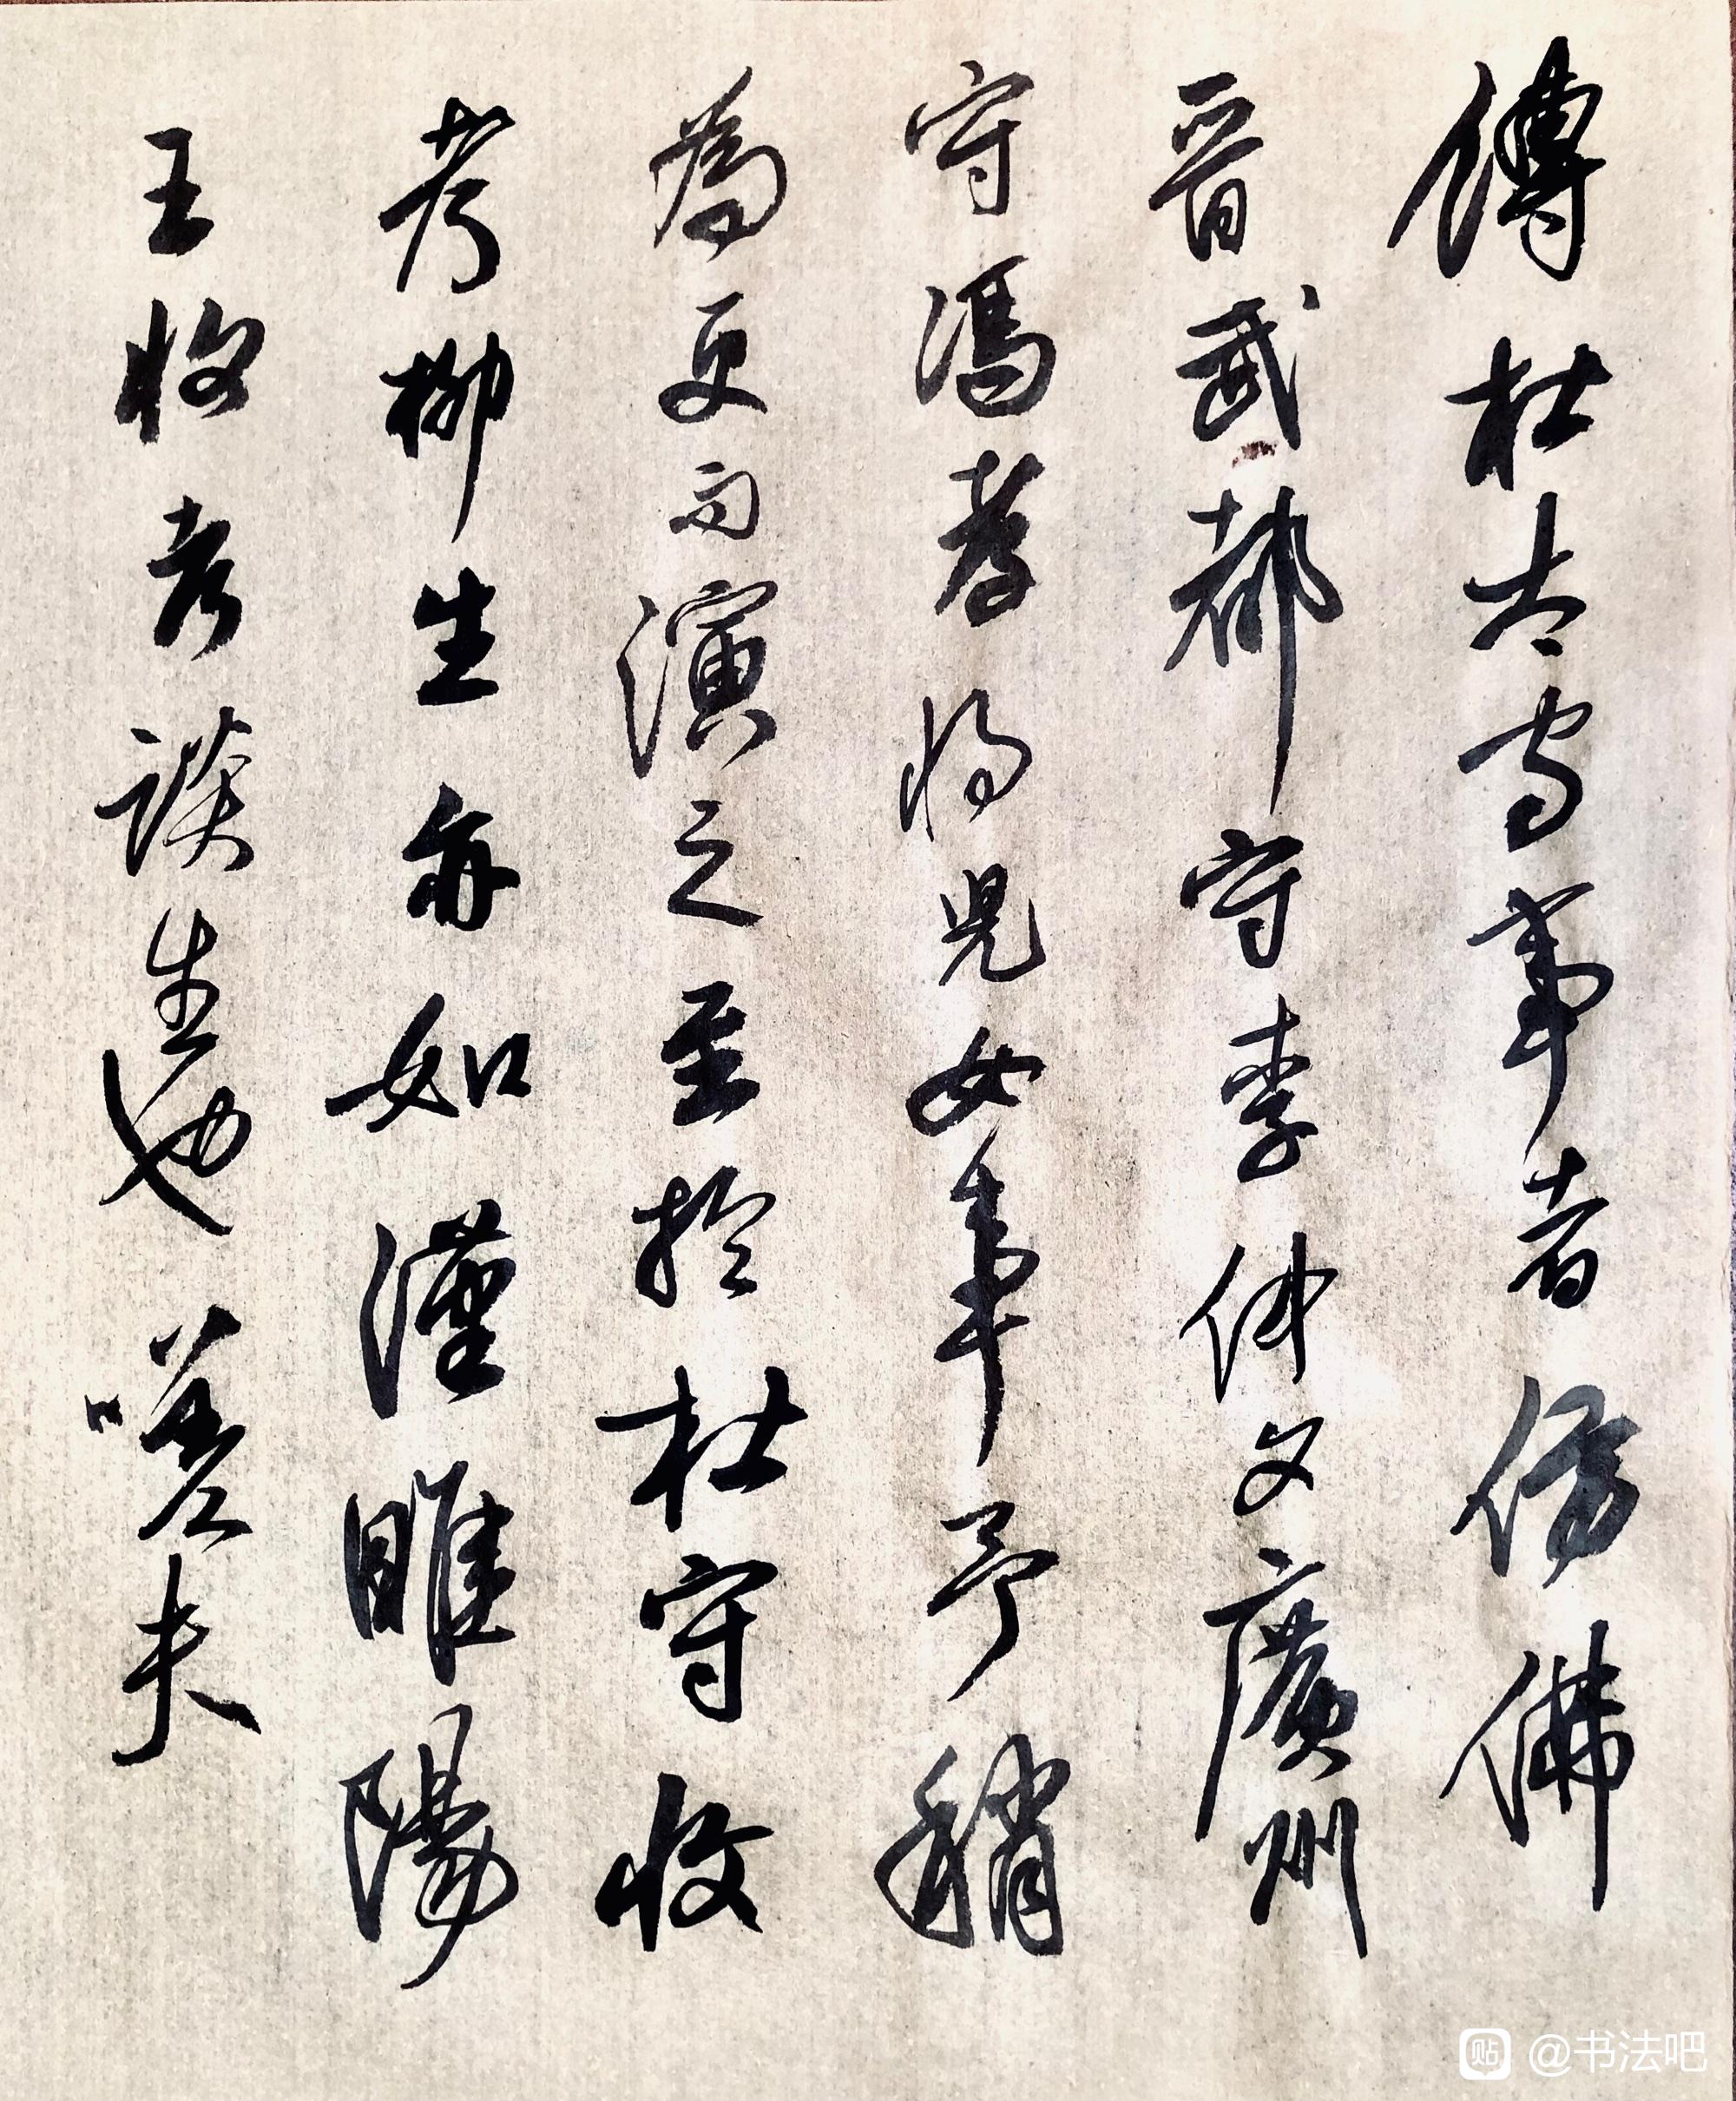 傳杜太守事者仿佛
晉武都守李仲文廣州
守馮孝將兒女事予稍
為更而演之至於杜守收
考柳生亦如漢睢陽
王收考談生也嗟夫
@书法吧